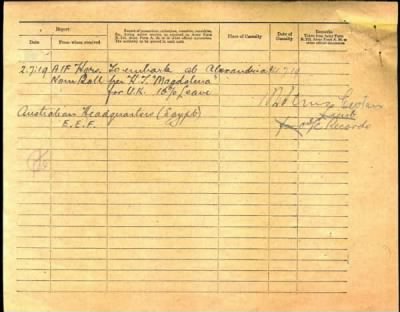 Report
Date
From whom received
Record of promotions, reductions, transfers, casualties,
etc., during active service, as reported on Army Form
B. 213, Army Form A. 36, or in other official documents.
The authority to be quoted in each case.
Place of Casualty
Date of
Casualty
Remarks
Taken from Army Form
B. 213, Army Form A. 36, or
other official documents.
2.7.19 AIF Hqrs. To embark at Alexandria 2.7.19
Nom Roll per "H.T. Magdalena"
for U.K. 10% Leave
Capt
Australian Headquarters (Egypt)
Records
E.E.F.